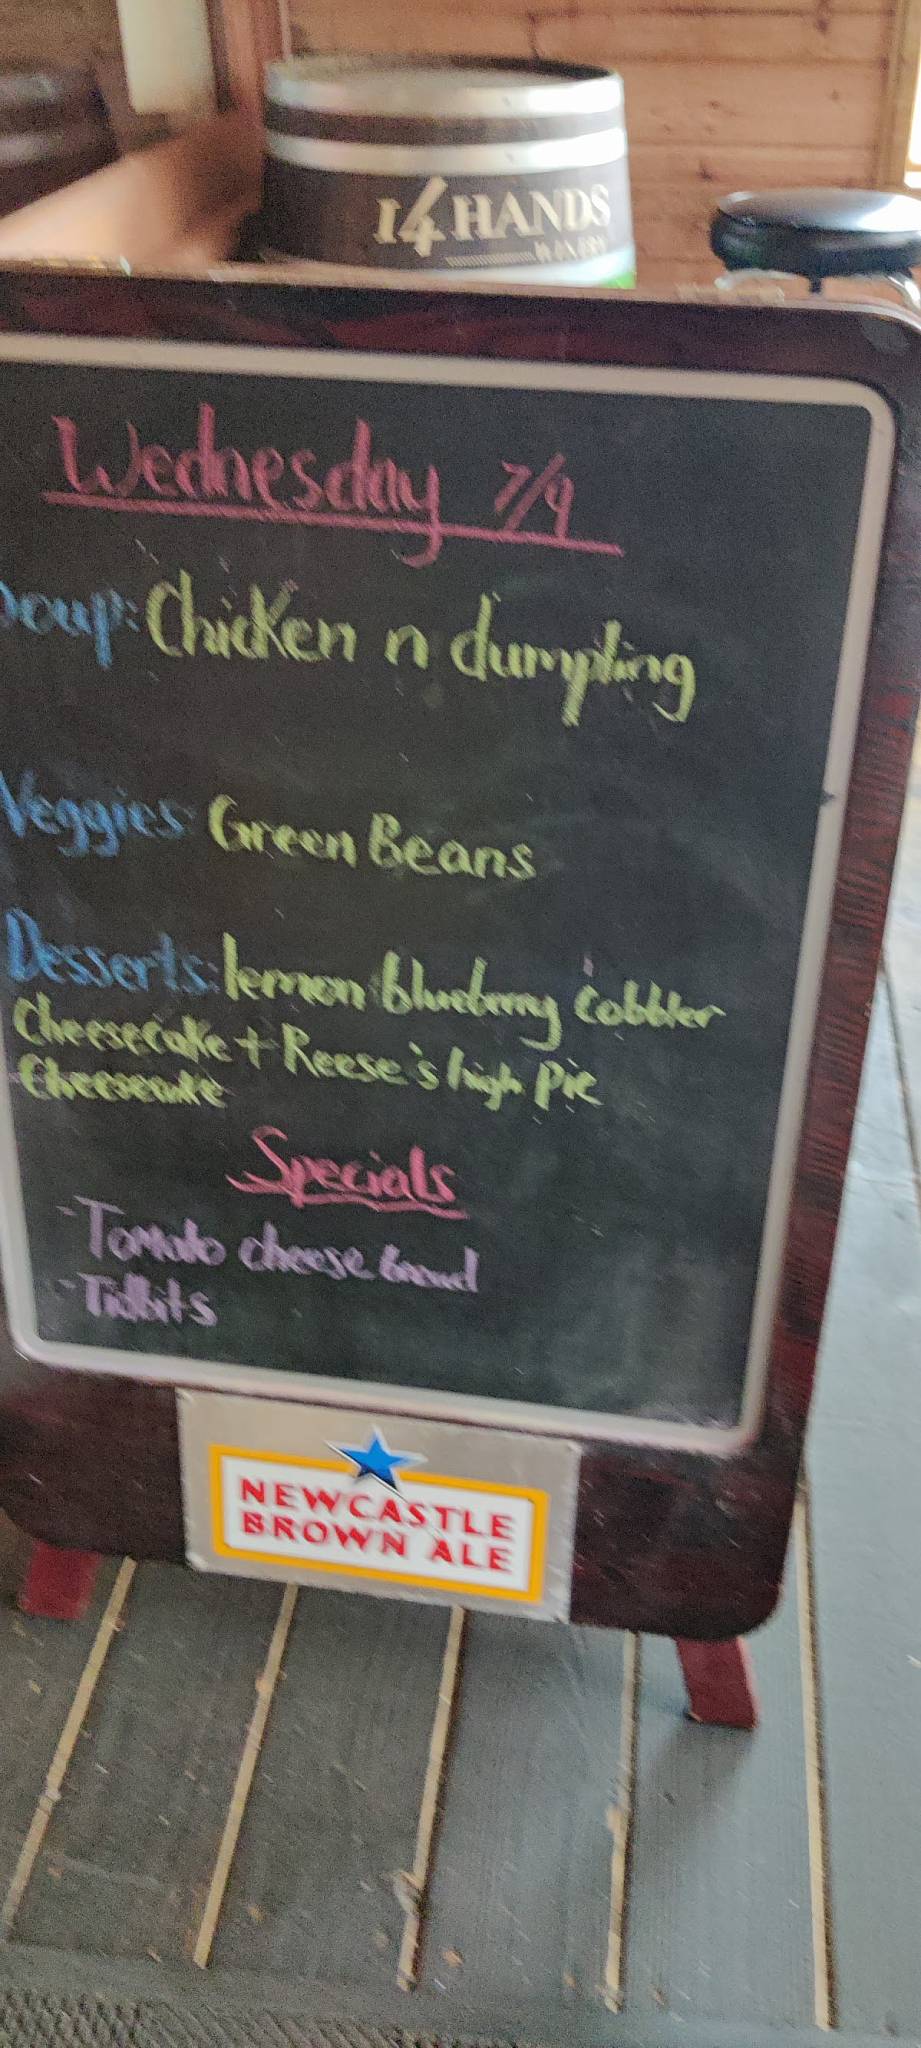 14 HANDS
WINERY
Wednesday 7/9
Soup: Chicken n dumpling
Veggies: Green Beans
Desserts: lemon blueberry cobbler
Cheesecake + Reese's high pie
Cheesecake
Specials
-Tomato cheese bread
-Tidbits
NEWCASTLE
BROWN ALE